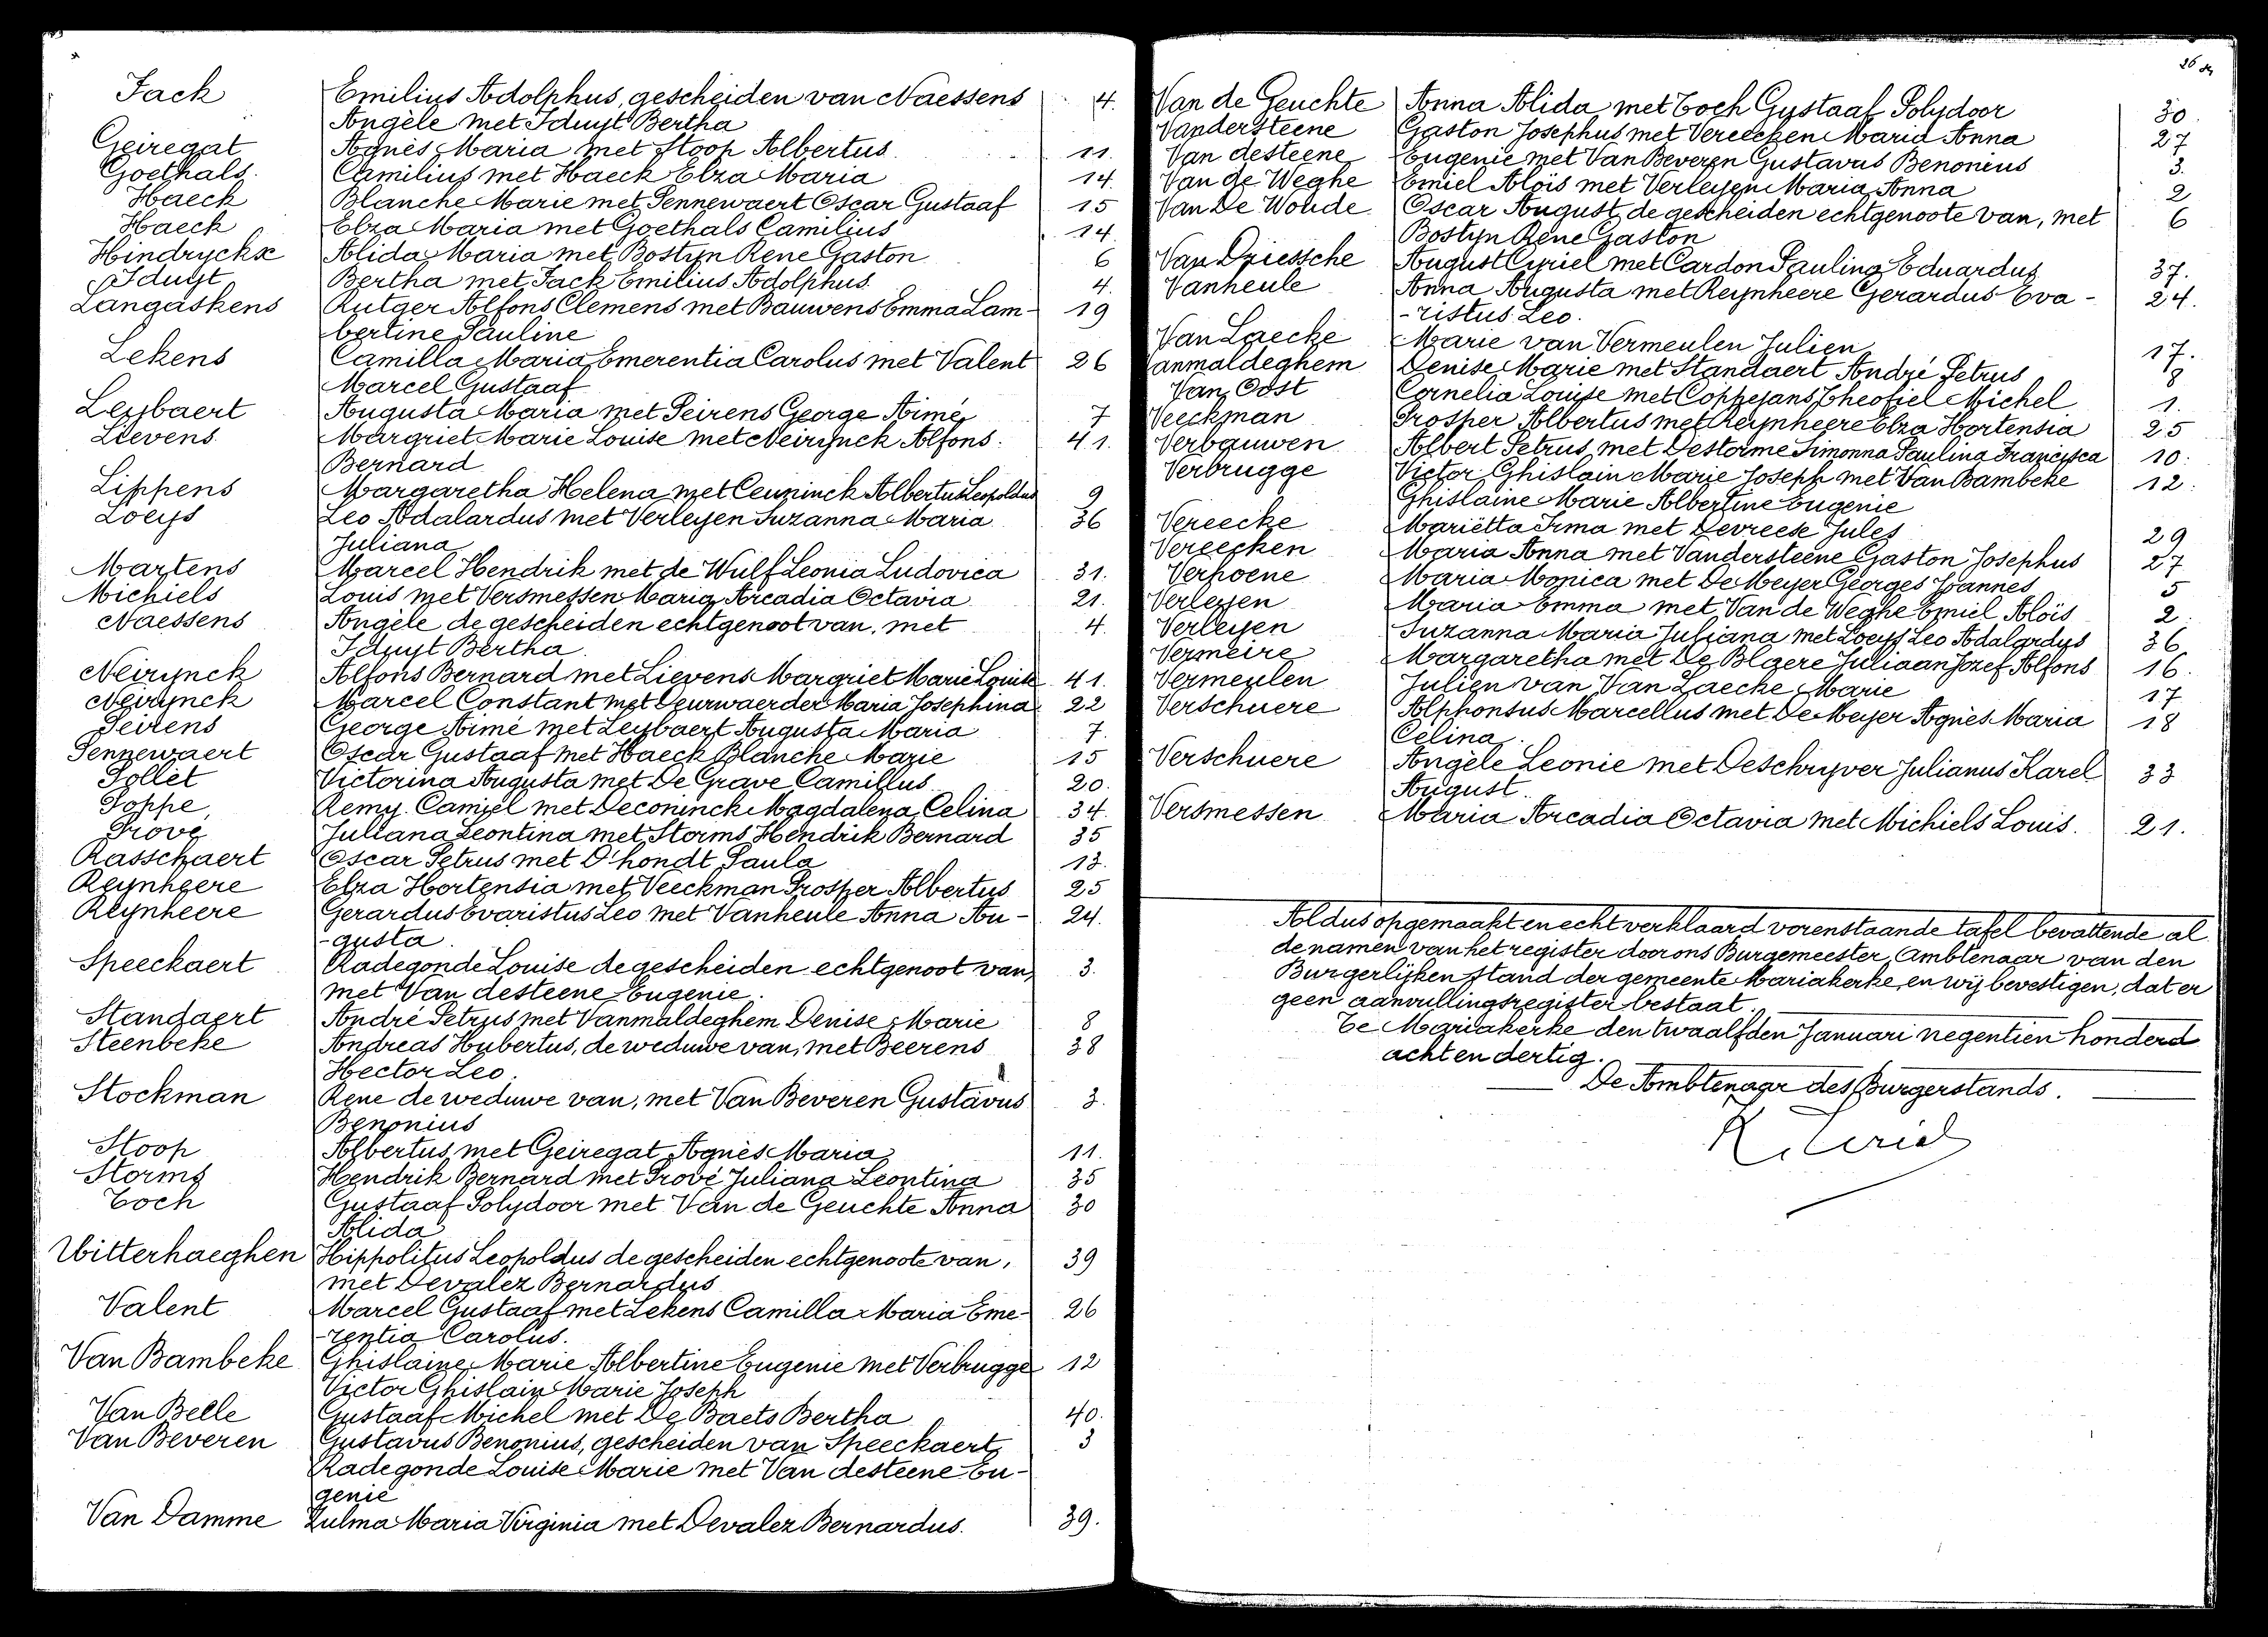 Fack Emilius Adolphus, gescheiden van Naessens 4.
Angèle met Iduyt Bertha
Geiregat Agnès Maria met Stoop Albertus 11.
Goethals Camilius met Haeck Elza Maria 14.
Haeck Blanche Marie met Pennewaert Oscar Gustaaf 15
Haeck Elza Maria met Goethals Camilius 14.
Hindryckx Alida Maria met Bostyn Rene Gaston 6
Iduyt Bertha met Fack Emilius Adolphus. 4.
Langaskens Rutger Alfons Clemens met Bauwens Emma Lam- 19
bertine Pauline
Lekens Camilla Maria Emerentia Carolus met Valent 26
Marcel Gustaaf
Leybaert Augusta Maria met Peirens George Aimé 7
Lievens Margriet Marie Louise met Neirynck Alfons. 41.
Bernard
Lippens Margaretha Helena met Ceuninck Albertus Leopoldus 9
Loeys Leo Adalardus met Verleyen Suzanna Maria 36
Juliana
Martens Marcel Hendrik met de Wulf Leonia Ludovica 31.
Michiels Louis met Versmessen Maria Arcadia Octavia 21.
Naessens Angèle de gescheiden echtgenoot van, met 4.
Iduyt Bertha.
Neirynck Alfons Bernard met Lievens Margriet Marie Louise 41.
Neirynck Marcel Constant met Deurwaerder Maria Josephina 22
Peirens George Aimé met Leybaert Augusta Maria 7.
Pennewaert Oscar Gustaaf met Haeck Blanche Marie 15
Pollet Victorina Augusta met De Grave Camillus 20.
Poppe Remy Camiel met Deconinck Magdalena Celina 34.
Prové Juliana Leontina met Storms Hendrik Bernard 35
Rasschaert Oscar Petrus met D'hondt Paula 13.
Reynheere Elza Hortensia met Veeckman Prosper Albertus 25
Reynheere Gerardus Evaristus Leo met Vanheule Anna Au- 24.
-gusta.
Speeckaert Radegonde Louise de gescheiden echtgenoot van, 3.
met Van desteene Eugenie.
Standaert André Petrus met Vanmaldeghem Denise Marie 8
Steenbeke Andreas Hubertus, de weduwe van, met Beerens 38
Hector Leo.
Stockman Rene de weduwe van, met Van Beveren Gustavus 3.
Benonius
Stoop Albertus met Geiregat Agnès Maria 11.
Storms Hendrik Bernard met Prové Juliana Leontina 35
Toch Gustaaf Polydoor met Van de Geuchte Anna 30
Alida
Uitterhaeghen Hippolitus Leopoldus de gescheiden echtgenoote van, 39
met Devalez Bernardus
Valent Marcel Gustaaf met Lekens Camilla Maria Eme- 26
-rentia Carolus.
Van Bambeke Ghislaine Marie Albertine Eugenie met Verbrugge 12
Victor Ghislain Marie Joseph
Van Belle Gustaaf Michel met De Baets Bertha 40.
Van Beveren Gustavus Benonius, gescheiden van Speeckaert, 3
Radegonde Louise Marie met Van desteene Eu-
genie
Van Damme Zulma Maria Virginia met Devalez Bernardus. 39.
26
Van de Geuchte Anna Alida met Toch Gustaaf Polydoor 30.
Vandersteene Gaston Josephus met Vereecken Maria Anna 27
Van desteene Eugenie met Van Beveren Gustavus Benonius 3.
Van de Weghe Emiel Aloïs met Verleyen Maria Anna 2
Van De Woude Oscar August, de gescheiden echtgenoote van, met 6
Bostyn Rene Gaston
Van Driessche August Cyriel met Cardon Paulina Eduardus 37.
Vanheule Anna Augusta met Reynheere Gerardus Eva- 24.
-ristus Leo.
Van Laecke Marie van Vermeulen Julien 17.
Vanmaldeghem Denise Marie met Standaert André Petrus 8
Van Oost Cornelia Louise met Coppejans Theofiel Michel 1.
Veeckman Prosper Albertus met Reynheere Elza Hortensia 25
Verbauwen Albert Petrus met Destorme Simonna Paulina Francisca 10.
Verbrugge Victor Ghislain Marie Joseph met Van Bambeke 12.
Ghislaine Marie Albertine Eugenie
Vereecke Mariëtta Irma met Devreese Jules 29
Vereecken Maria Anna met Vandersteene Gaston Josephus 27
Verhoene Maria Monica met De Meyer Georges Joannes 5
Verleyen Maria Emma met Van de Weghe Emiel Aloïs 2.
Verleyen Suzanna Maria Juliana met Loeys Leo Adalardus 36
Vermeire Margaretha met De Blaere Juliaan Jozef Alfons 16.
Vermeulen Julien van Van Laecke Marie 17
Verschuere Alphonsus Marcellus met De Meyer Agnès Maria 18
Celina.
Verschuere Angèle Leonie met Deschryver Julianus Karel 33
August.
Versmessen Maria Arcadia Octavia met Michiels Louis. 21.
Aldus opgemaakt en echt verklaard vorenstaande tafel bevattende al
de namen van het register door ons Burgemeester, Ambtenaar van den
Burgerlijken stand der gemeente Mariakerke, en wij bevestigen, dat er
geen aanvullingsregister bestaat.
Te Mariakerke den twaalfden Januari negentien honderd
acht en dertig.
De Ambtenaar des Burgerstands.